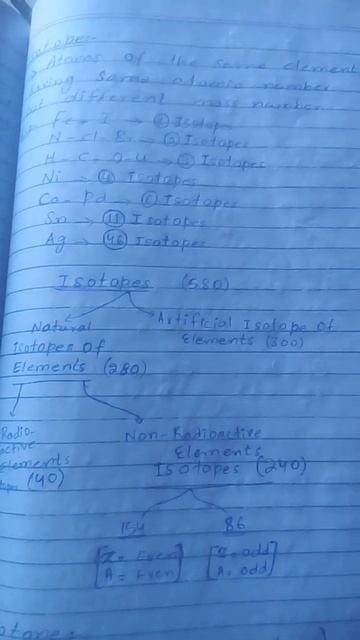 otopes-
Atoms of the same element
having same atomic number
but different mass number
Fe - I → ① Isotope
N - Cl - Br → ② Isotopes
H - C - O - U → ③ Isotopes
Ni → ④ Isotopes
Ca - Pd → ⑥ Isotopes
Sn → ⑪ Isotopes
Ag → ㊻ Isotopes
Isotopes (580)
Natural
isotopes of
Elements (280)
Artificial Isotope of
Elements (300)
Radio-
active
Elements
(40)
Non-Radioactive
Elements
Isotopes (240)
154
[Z = Even
A = Even]
86
[Z = odd
A = odd]